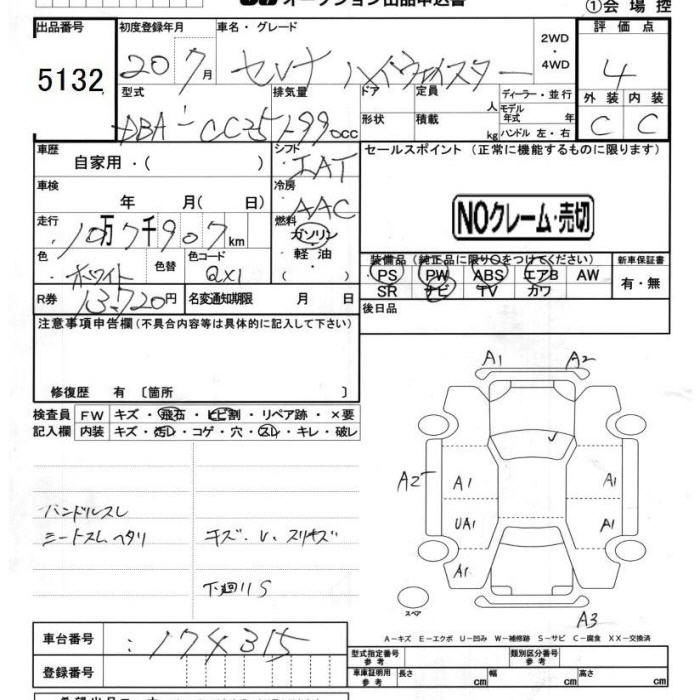 オークション出品申込書 ①会場控
出品番号 初度登録年月 車名・グレード 2WD・4WD 評価点
5132 20 7月 セレナ ハイウェイスター 4
型式 排気量 ドア 定員 人 ディーラー・並行 外装 内装
DBA-CC25 1.99 0cc 形状 積載 kg モデル年式 年 ハンドル 左・右 C C
車歴 自家用・( ) シフト IAT セールスポイント(正常に機能するものに限ります)
車検 年 月( 日) 冷房 AAC
NOクレーム・売切
走行 10万7千907km 燃料 ガソリン・軽油・( )
色 ホワイト 色替 色コード QX1
装備品(純正品に限り○をつけてください) 新車保証書
PS PW ABS エアB AW 有・無
SR ナビ TV カワ
R券 13720円 名変通知期限 月 日 後日品
注意事項申告欄(不具合内容等は具体的に記入して下さい)
修復歴 有〔箇所 〕
検査員 FW キズ・飛石・ヒビ割・リペア跡・×要
記入欄 内装 キズ・汚レ・コゲ・穴・スレ・キレ・破レ
ハンドルスレ
シートスレ ヘタリ キズ・U・スリキズ
下廻りS
A1 A2
A2 A1 A1
UA1 A1
A1
スペア A3
A-キズ E-エクボ U-凹み W-補修跡 S-サビ C-腐食 XX-交換済
車台番号 :174315
登録番号
型式指定番号 参考 類別区分番号 参考
車庫証明用 参考 長さ cm 幅 cm 高さ cm